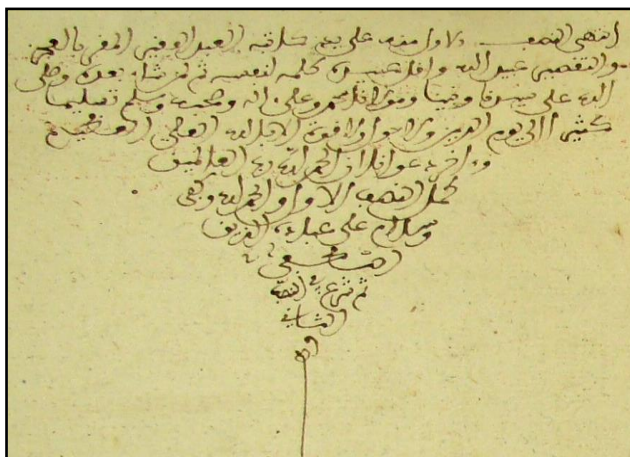 انتهى النصف الاول منه على يد كاتبه العبد الفقير المقر بالعجز
والتقصير عبد الله واقل عبيده كتبه لنفسه ثم لمن شاء بعده وصلى
الله على سيدنا ونبينا ومولانا محمد وعلى اله وصحبه وسلم تسليما
كثيرا الى يوم الدين ولا حول ولا قوة الا بالله العلي العظيم
واخر دعوانا ان الحمد لله رب العالمين
كمل النصف الاول والحمد لله وكفى
وسلام على عباده الذين
اصطفى
ثم شرع في النصف
الثاني